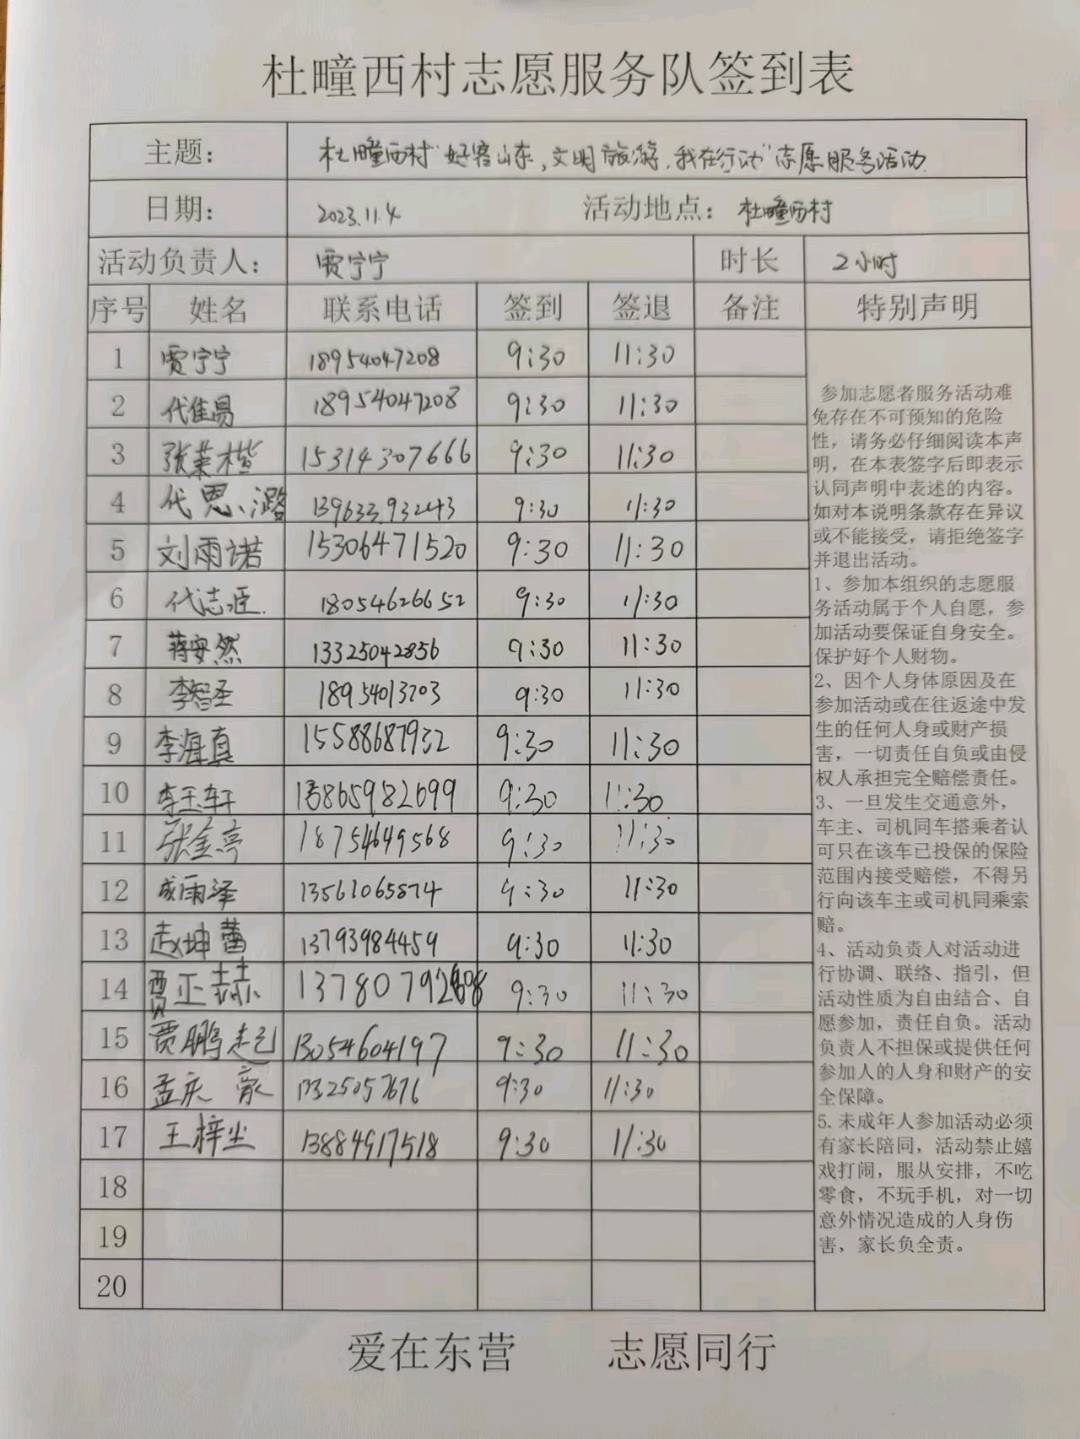 杜疃西村志愿服务队签到表
主题： 杜疃西村"好客山东,文明旅游,我在行动"志愿服务活动
日期： 2023.11.4 活动地点： 杜疃西村
活动负责人： 贾宁宁 时长 2小时
序号 姓名 联系电话 签到 签退 备注 特别声明
1 贾宁宁 18954047208 9:30 11:30
2 代佳易 18954047208 9:30 11:30
3 张 楷 15314307666 9:30 11:30
4 代思潞 13963393243 9:30 11:30
5 刘雨诺 15306471520 9:30 11:30
6 代志 18054626652 9:30 11:30
7 蒋安然 13325042856 9:30 11:30
8 李智圣 9:30 11:30
9 李海真 15588687932 9:30 11:30
10 李玉轩 13865982699 9:30 11:30
11 张金亭 18754649568 9:30 11:30
12 成雨泽 13561065874 9:30 11:30
13 赵坤蕾 13793984459 9:30 11:30
14 贾正赫 9:30 11:30
15 贾鹏赴 13054604197 9:30 11:30
16 孟庆豪 9:30 11:30
17 王梓尘 13884917518 9:30 11:30
18
19
20
参加志愿者服务活动难
免存在不可预知的危险
性，请务必仔细阅读本声
明，在本表签字后即表示
认同声明中表述的内容。
如对本说明条款存在异议
或不能接受，请拒绝签字
并退出活动。
1、参加本组织的志愿服
务活动属于个人自愿，参
加活动要保证自身安全。
保护好个人财物。
2、因个人身体原因及在
参加活动或在往返途中发
生的任何人身或财产损
害，一切责任自负或由侵
权人承担完全赔偿责任。
3、一旦发生交通意外，
车主、司机同车搭乘者认
可只在该车已投保的保险
范围内接受赔偿，不得另
行向该车主或司机同乘索
赔。
4、活动负责人对活动进
行协调、联络、指引，但
活动性质为自由结合、自
愿参加，责任自负。活动
负责人不担保或提供任何
参加人的人身和财产的安
全保障。
5.未成年人参加活动必须
有家长陪同，活动禁止嬉
戏打闹，服从安排，不吃
零食，不玩手机，对一切
意外情况造成的人身伤
害，家长负全责。
爱在东营 志愿同行